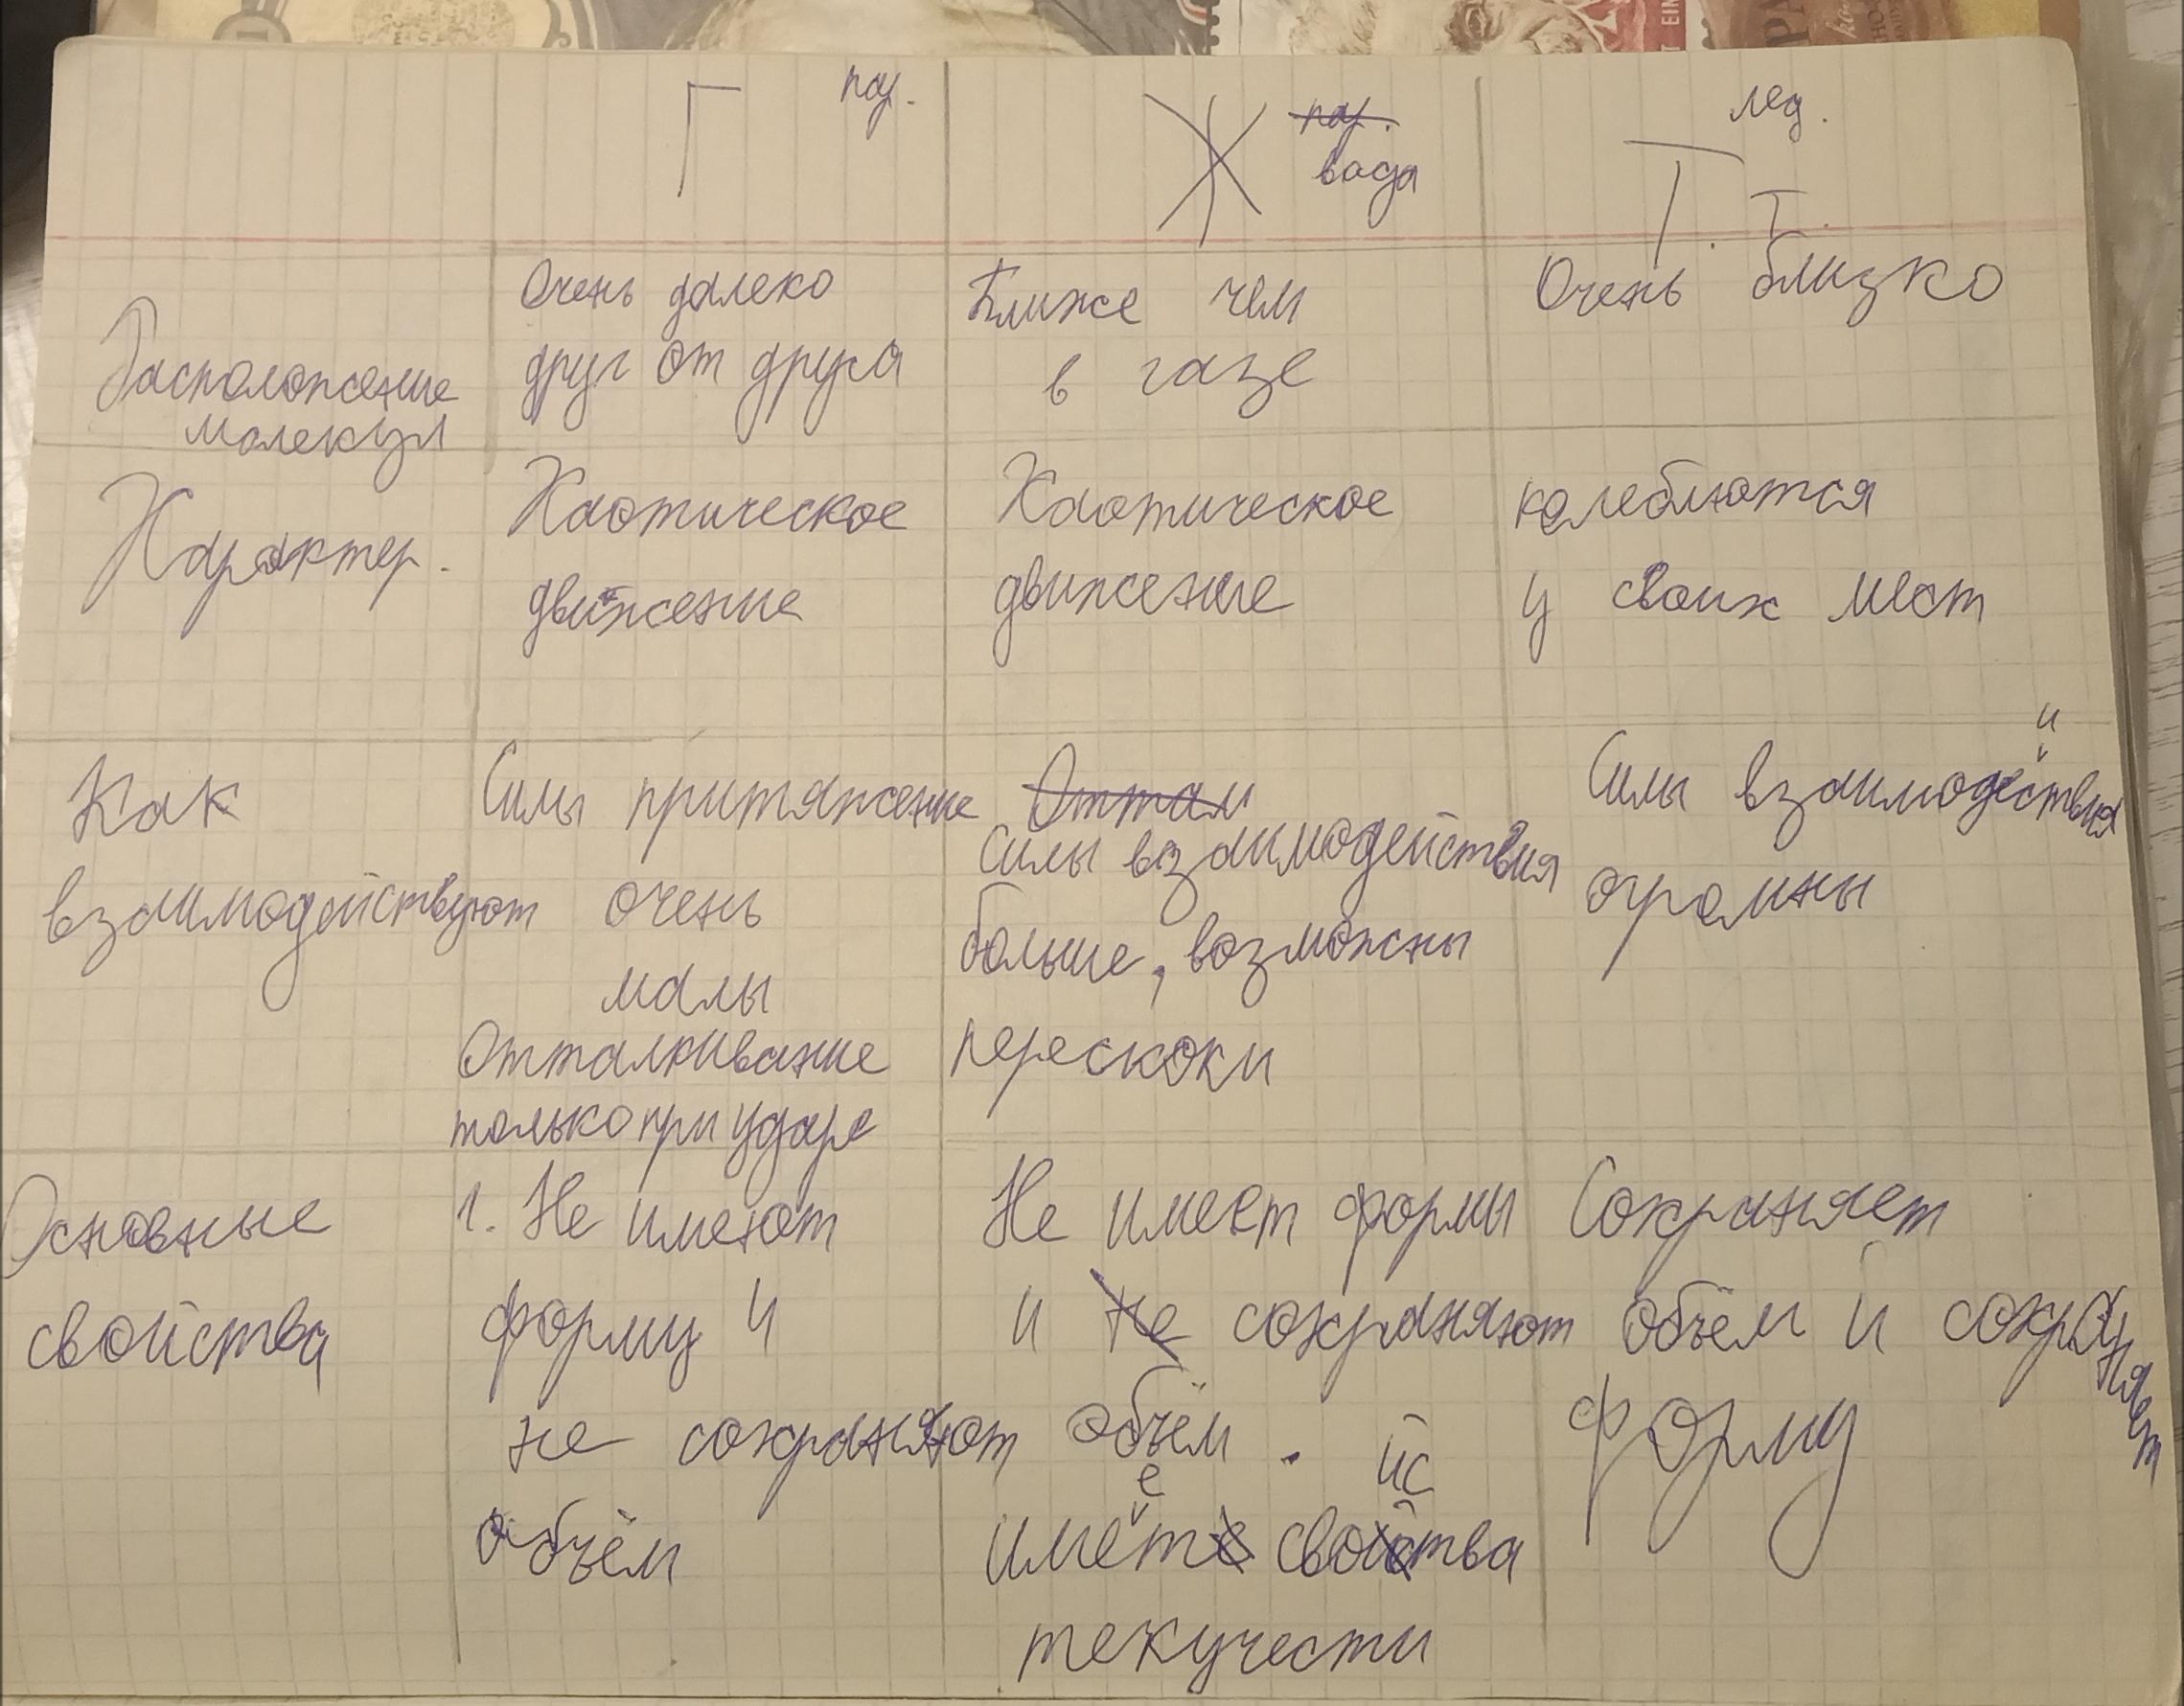 Г пар.
Ж пар.
вода
лед.
Т. Т.
Расположение
молекул
Очень далеко
друг от друга
Ближе чем
в газе
Очень близко
Характер.
Хаотическое
движение
Хаотическое
движение
колеблются
у своих мест
Как
взаимодействуют
Силы притяжение
очень
малы
Отталкивание
только при ударе
Оттал
Силы взаимодействия
больше, возможны
перескоки
и
Силы взаимодействия
огромны
Основные
свойства
1. Не имеют
форму и
не сохраняют
объём
Не имеет формы
и не сохраняют
объём.
е йс
имет свойства
текучести
Сохраняет
объём и сохраняет
форму